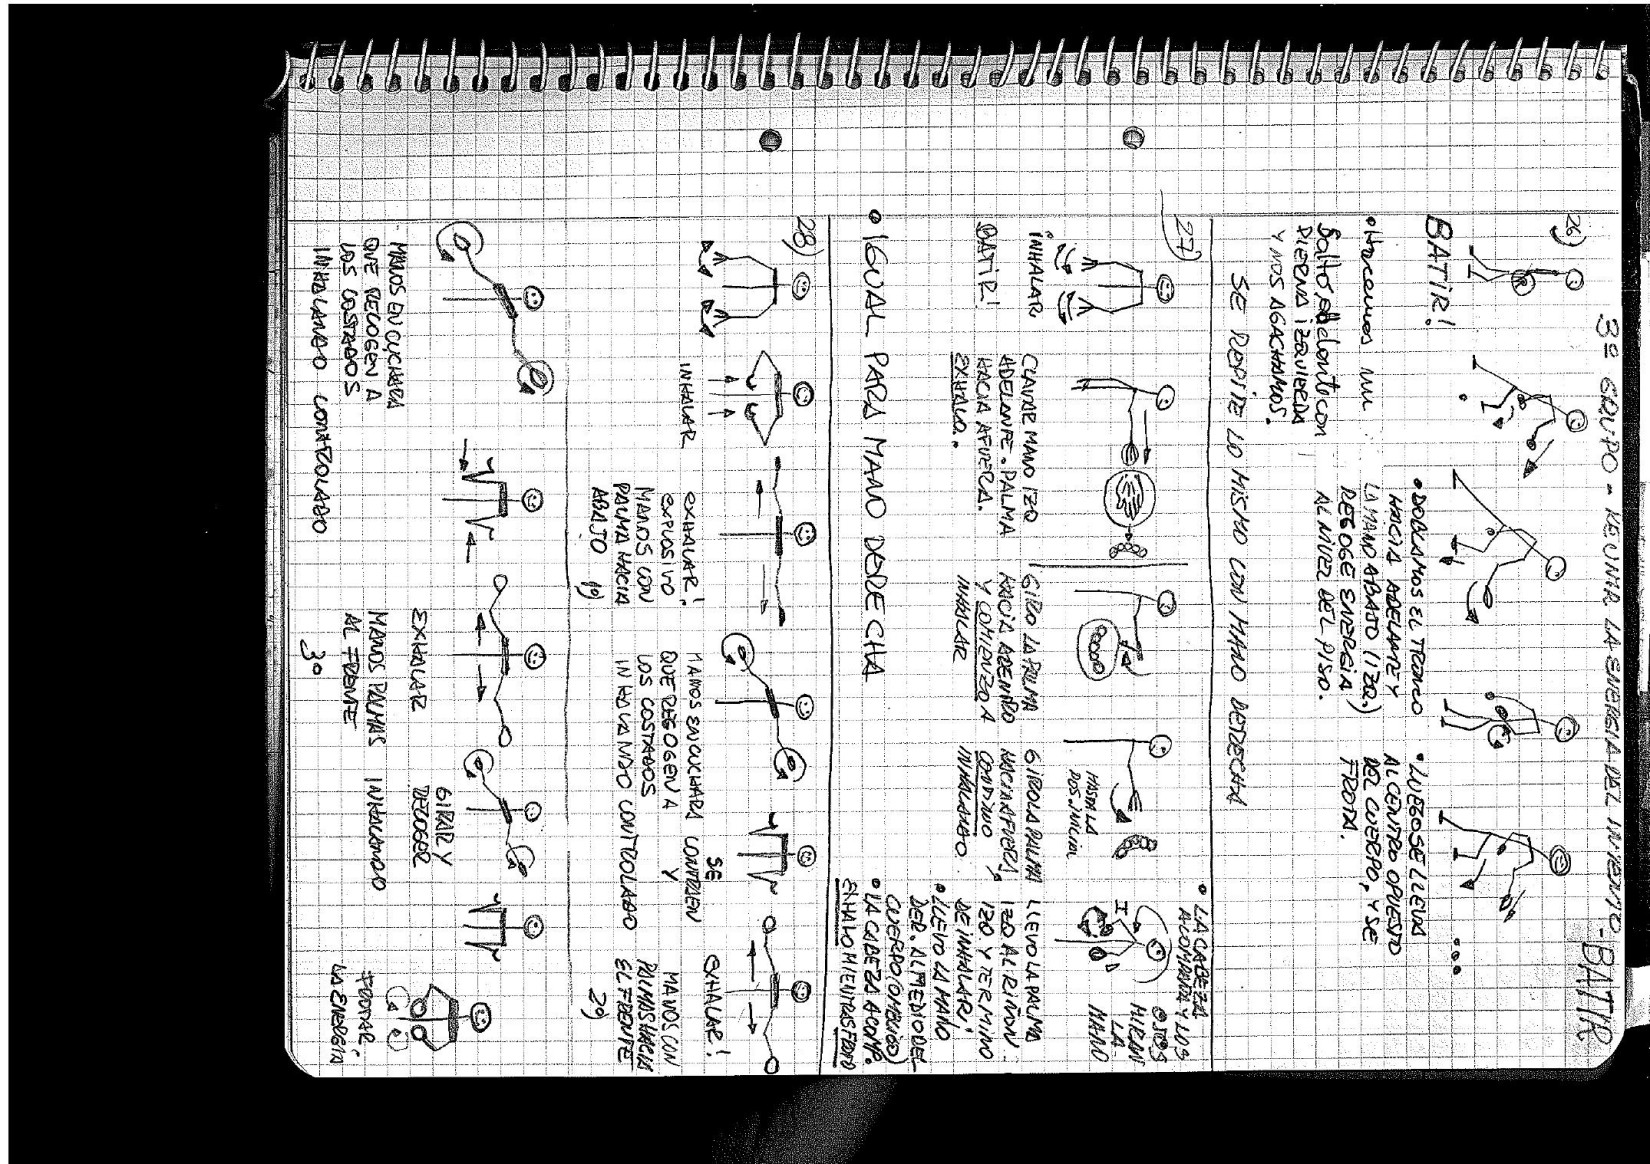 3º GRUPO - REUNIR LA ENERGIA DEL INVIERNO - BATIR
26)
BATIR!
• Hacemos un
Salto adelante con
PIERNA IZQUIERDA
Y NOS AGACHAMOS.
• DOBLAMOS EL TRONCO
HACIA ADELANTE Y
LA MANO ABAJO (IZQ.)
RECOGE ENERGIA
AL NIVEL DEL PISO.
• LUEGO SE LLEVA
AL CENTRO OPUESTO
DEL CUERPO, Y SE
FROTA.
...
SE REPITE LO MISMO CON MANO DERECHA
27)
INHALAR
BATIR!
CLAVAR MANO IZQ
ADELANTE. PALMA
HACIA AFUERA.
EXHALO.
GIRO LA PALMA
HACIA ADENTRO
Y COMIENZO A
INHALAR
HASTA LA
POS. INICIAL
GIRO LA PALMA
HACIA AFUERA,
CONTINUO
INHALANDO.
• LA CABEZA
ACOMPAÑA Y LOS
OJOS
MIRAN
LA
MANO
I
D
LLEVO LA PALMA
IZQ AL RIÑON
IZQ Y TERMINO
DE INHALAR.
• LLEVO LA MANO
DER. AL MEDIO DEL
CUERPO (OMBLIGO)
• LA CABEZA ACOMP.
EXHALO MIENTRAS FROTO
• IGUAL PARA MANO DERECHA
28)
INHALAR
EXHALAR!
EXPLOSIVO
MANOS CON
PALMA HACIA
ABAJO 1º)
MANOS EN CUCHARA
QUE RECOGEN A
LOS COSTADOS Y
INHALANDO CONTROLADO
SE
CONTRAEN
EXHALAR!
MANOS CON
PALMAS HACIA
EL FRENTE
2º)
MANOS EN CUCHARA
QUE RECOGEN A
LOS COSTADOS
INHALANDO CONTROLADO
EXHALAR
MANOS PALMAS
AL FRENTE
3º
GIRAR Y
RECOGER
INHALANDO
FROTAR
LA ENERGIA